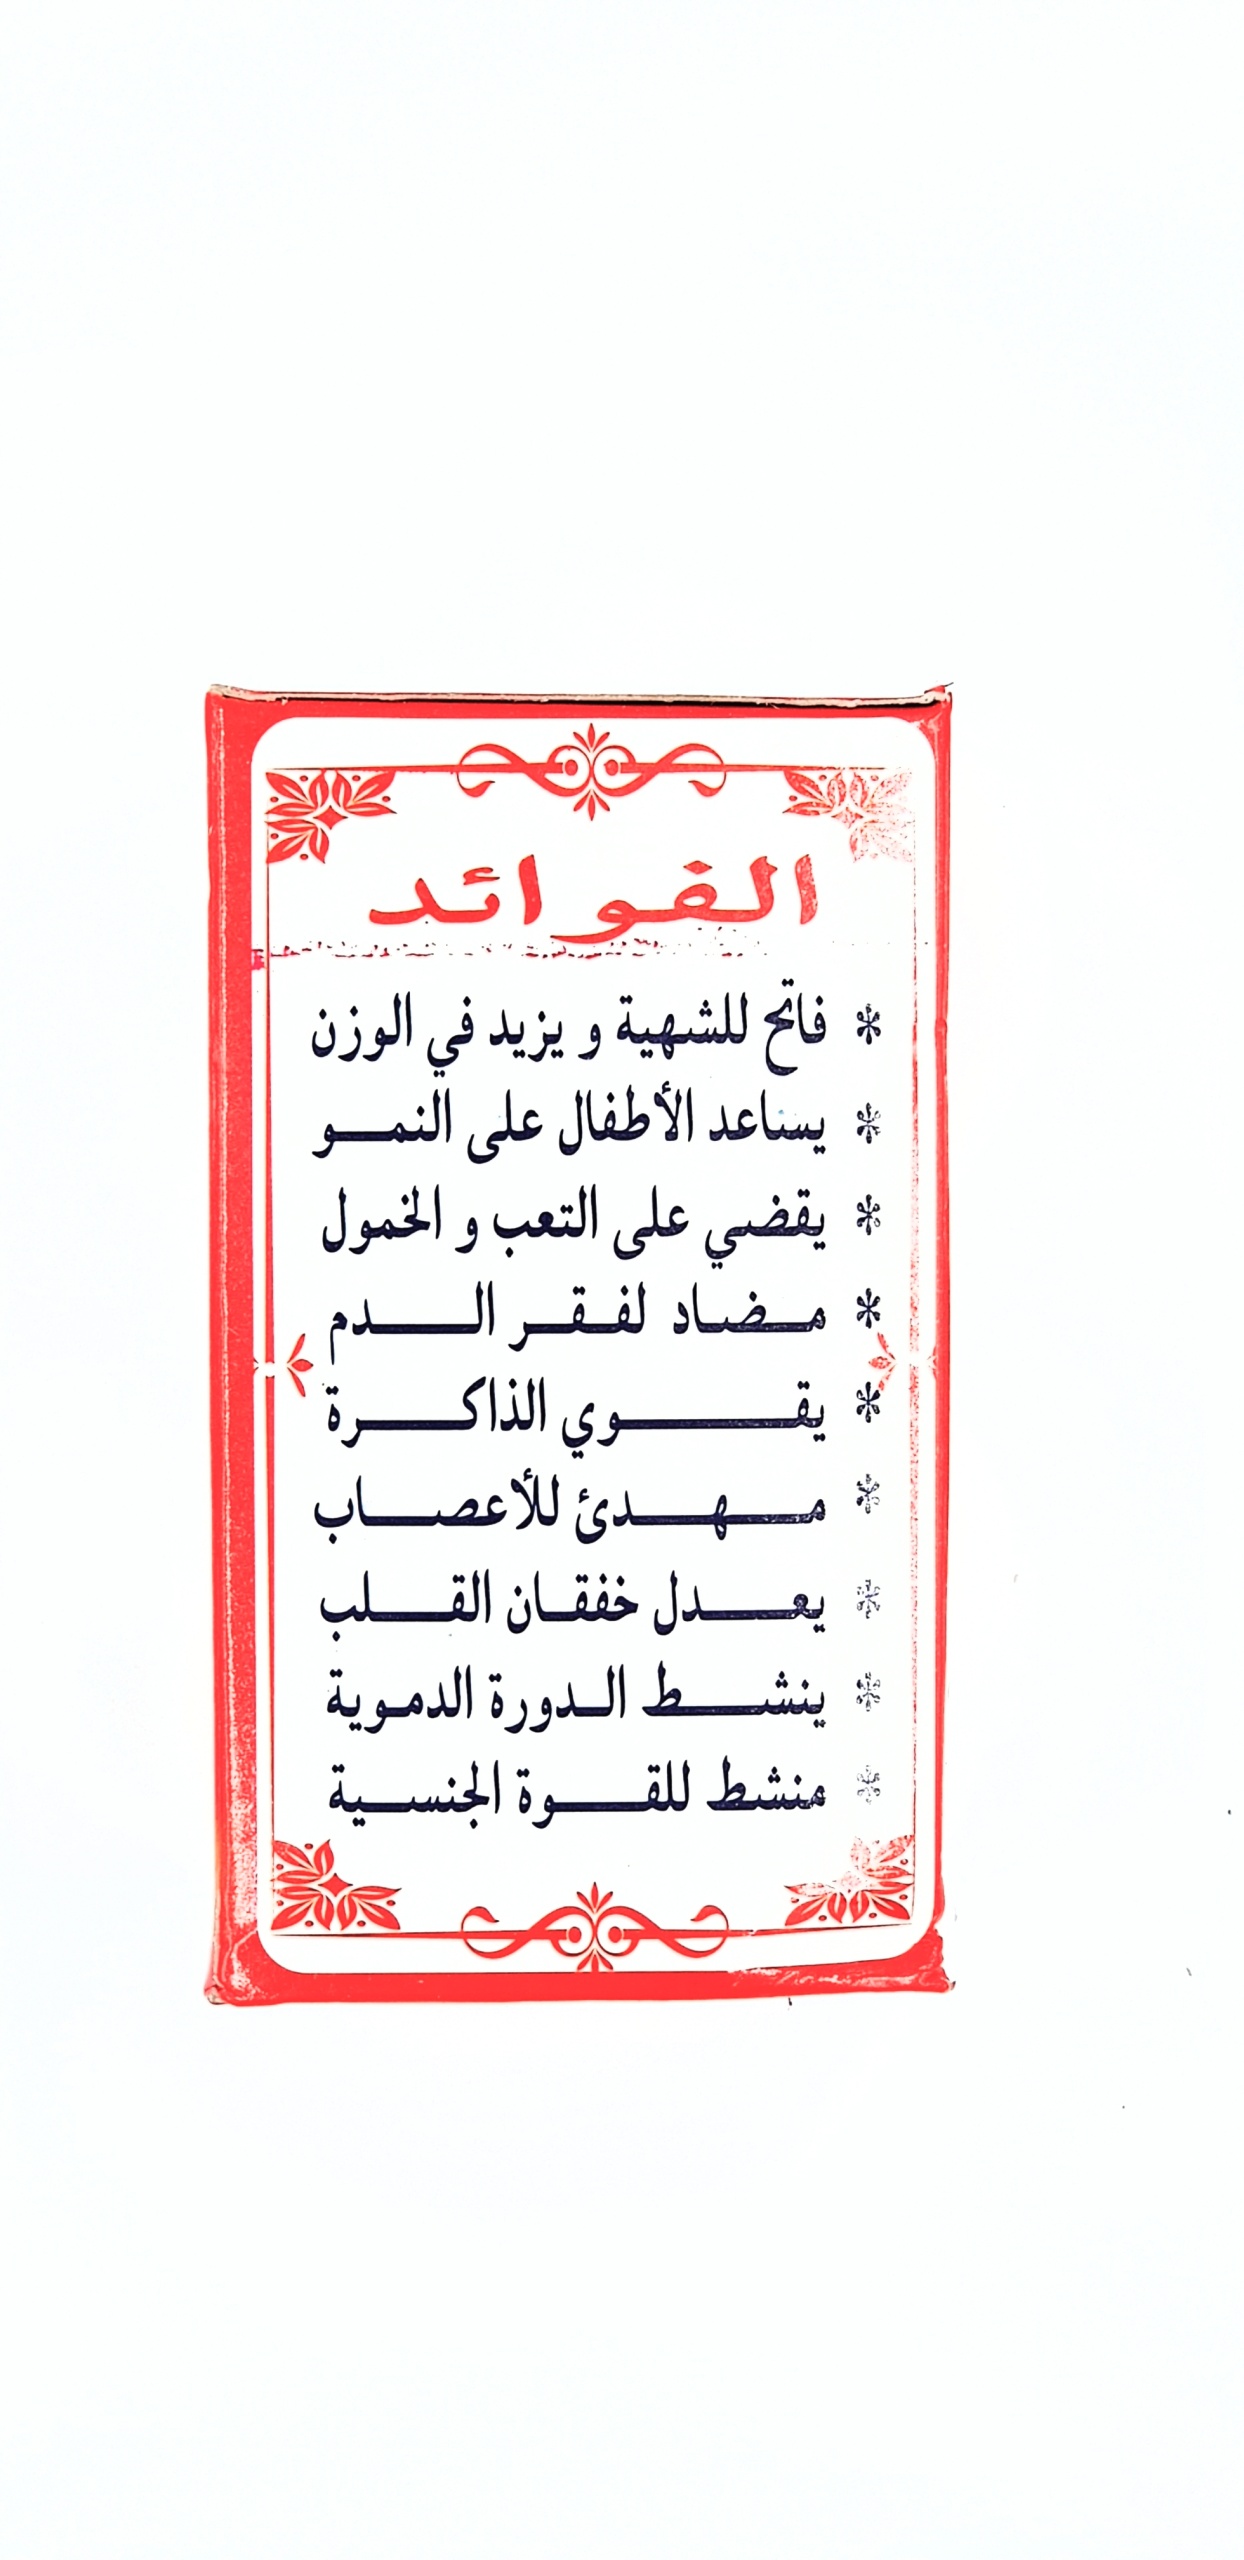 الفوائد
* فاتح للشهية و يزيد في الوزن
* يساعد الأطفال على النمو
* يقضي على التعب و الخمول
* مضاد لفقر الدم
* يقوي الذاكرة
* مهدئ للأعصاب
* يعدل خفقان القلب
* ينشط الدورة الدموية
* منشط للقوة الجنسية